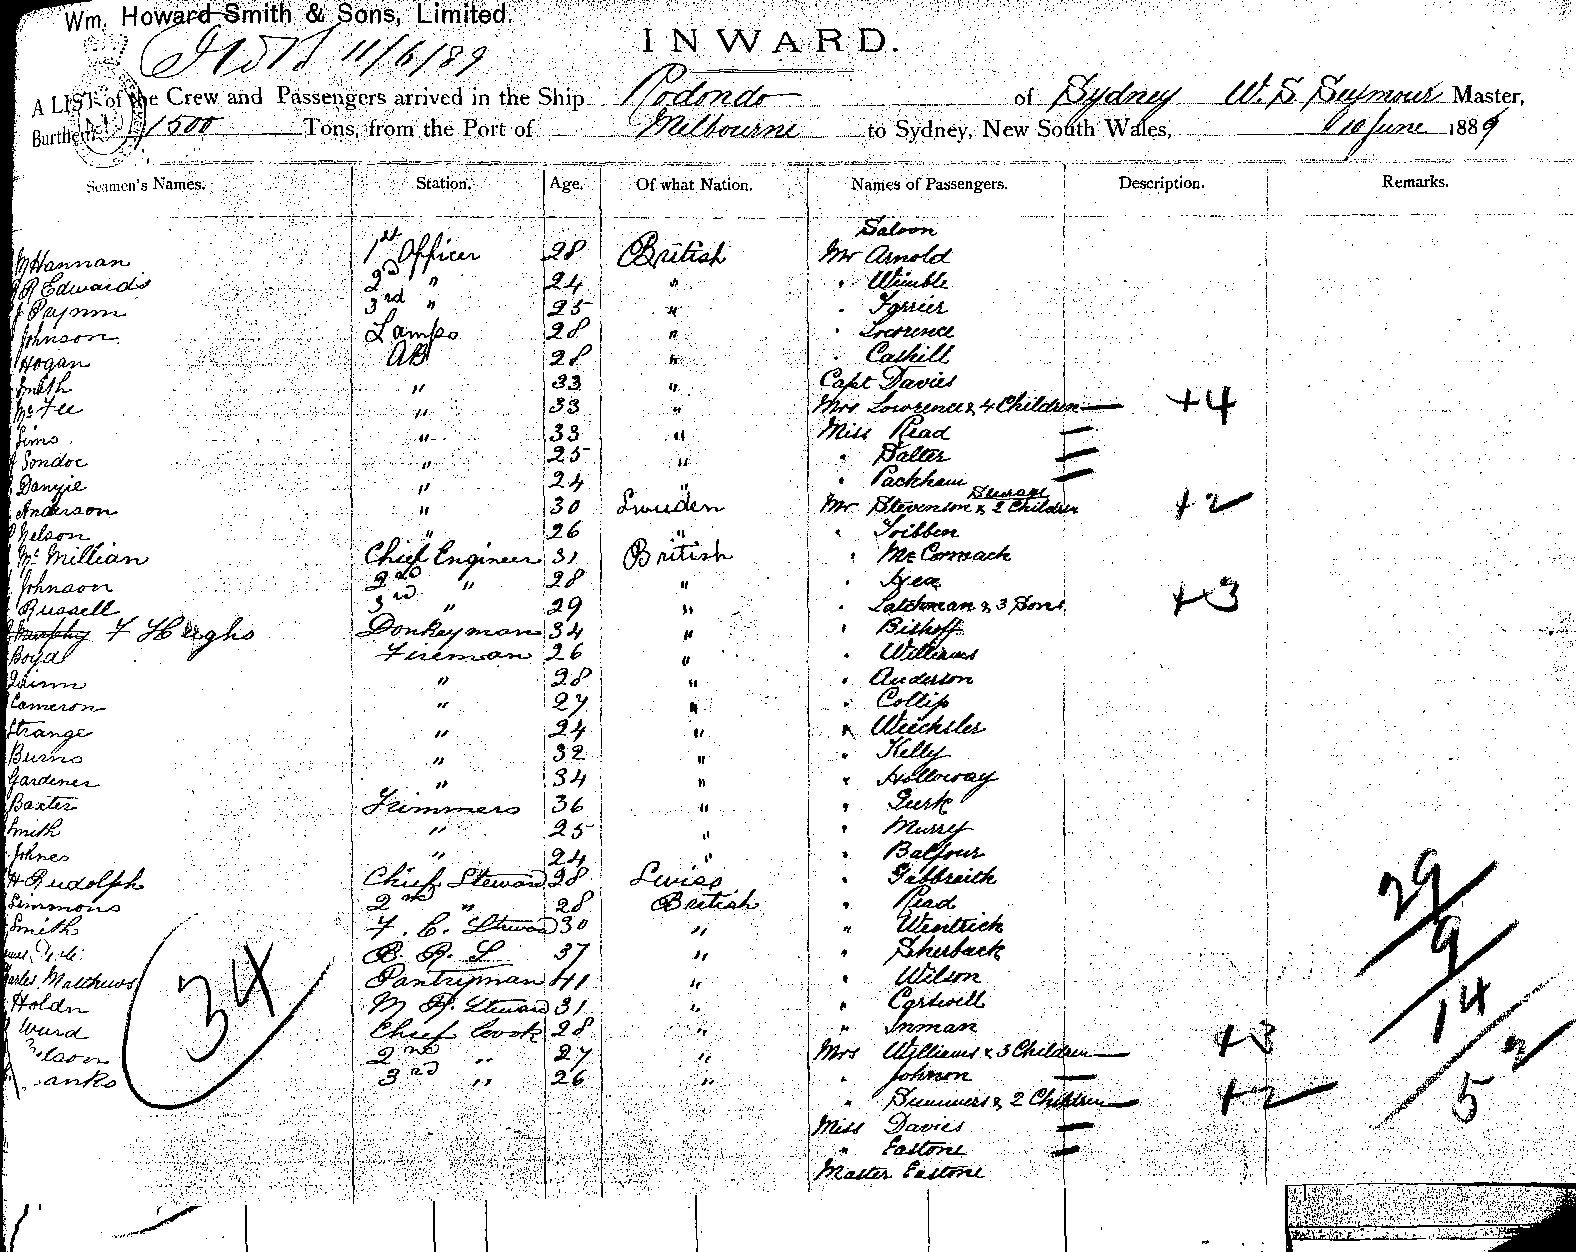 Wm. Howard Smith & Sons, Limited.
11/6/89
INWARD.
A LIST of the Crew and Passengers arrived in the Ship Rodondo of Sydney W. S. Seymour Master,
Burthen 1500 Tons, from the Port of Melbourne to Sydney, New South Wales, 10 June 1889
Seamen's Names. Station. Age. Of what Nation. Names of Passengers. Description. Remarks.
Saloon
Hannan 1st Officer 28 British Mr Arnold
Edwards 2nd " 24 " " Wimble
3rd " 25 " "
Johnson Lamps 28 " "
Hogan AB 28 " " Cashill
Smith " 33 " Capt Davies
McFee " 33 " Mrs Lowrence & 4 Children — +4
Sims " 33 " Miss Read —
" 25 " " Salter —
" 24 " " Packham —
Steerage
Anderson " 30 Sweden Mr Stevenson & 2 Children +2
Nelson " 26 " " Tribben
McMillian Chief Engineer 31 British " McCormack
Johnson 2nd " 28 " "
Russell 3rd " 29 " " Latchman & 3 Sons +3
Murphy F Herghs Donkeyman 34 " " Bishoff
Boyd Fireman 26 " " Williams
Quinn " 28 " " Anderson
Cameron " 27 " " Collip
Strange " 24 " " Weechsler
Burns " 32 " Kelly
Gardener " 34 " " Holloway
Baxter Trimmers 36 " "
Smith " 25 " " Murry
Johnes " 24 " " Balfour
H Rudolph Chief Steward 28 Swiss " Galbraith
Simmons 2nd " 28 British " Read
Smith F. C. Steward 30 " " Wentrick
B. R. S 37 " " Sherback
Charles Matthews Pantryman 41 " " Wilson
Holdn M R. Steward 31 " " Carswell
Ward Chief Cook 28 " " Inman
2nd " 27 " Mrs Williams & 3 Children — +3
3rd " 26 " " Johnson —
" Summers & 2 Children — +2
Miss Davies —
" Eastone —
Master Eastone
34
29
9
14
2
5